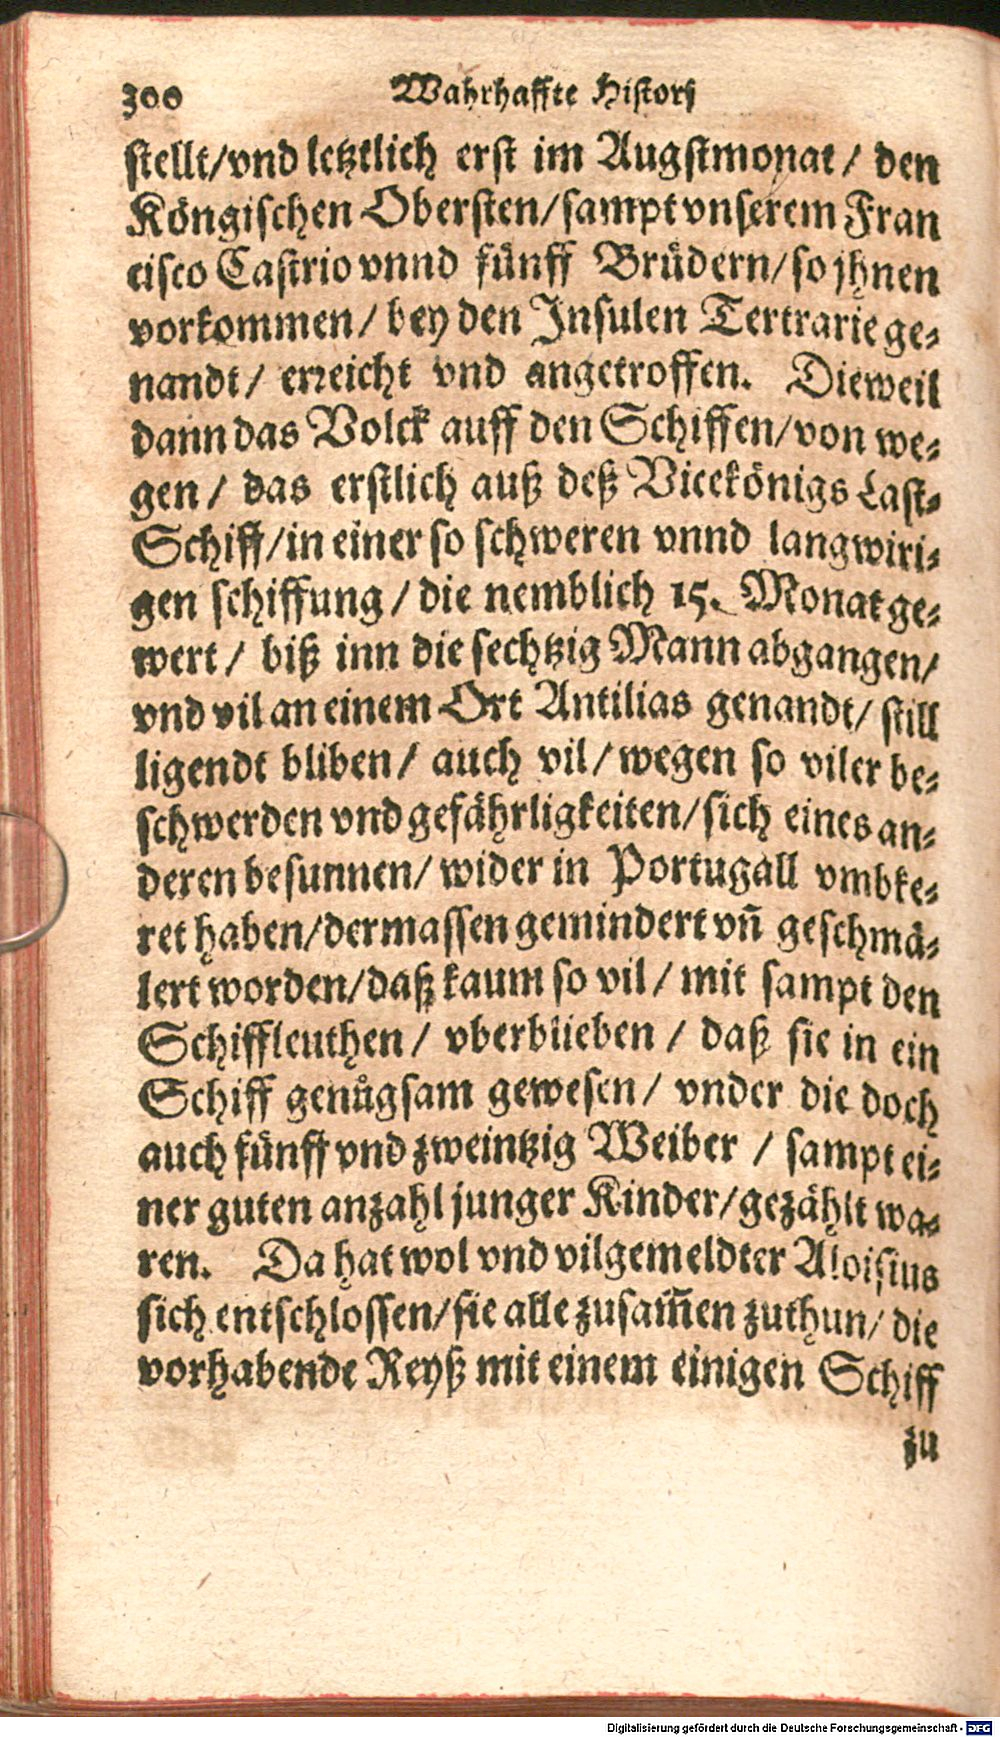 300 Wahrhaffte History
stellt/vnd letztlich erst im Augstmonat/ den
Köngischen Obersten/sampt vnserem Fran
cisco Castrio vnnd fünff Brüdern/so jhnen
vorkommen/ bey den Insulen Tertrarie ge-
nandt/ erreicht vnd angetroffen. Dieweil
dann das Volck auff den Schiffen/von we-
gen/ das erstlich auß deß Vicekönigs Last-
Schiff/in einer so schweren vnnd langwiri-
gen schiffung/die nemblich 15. Monat ge-
wert/ biß inn die sechtzig Mann abgangen/
vnd vil an einem Ort Antilias genandt/ still
ligendt bliben/ auch vil/wegen so viler be-
schwerden vnd gefährligkeiten/sich eines an-
deren besunnen/ wider in Portugall vmbke-
ret haben/dermassen gemindert vñ geschmä-
lert worden/daß kaum so vil/ mit sampt den
Schiffleuthen/ vberblieben/ daß sie in ein
Schiff genůgsam gewesen/ vnder die doch
auch fünff vnd zweintzig Weiber/ sampt ei-
ner guten anzahl junger Kinder/gezählt wa-
ren. Da hat wol vnd vilgemeldter Aloisius
sich entschlossen/sie alle zusam̃en zuthun/ die
vorhabende Reyß mit einem einigen Schiff
zu
Digitalisierung gefördert durch die Deutsche Forschungsgemeinschaft - DFG